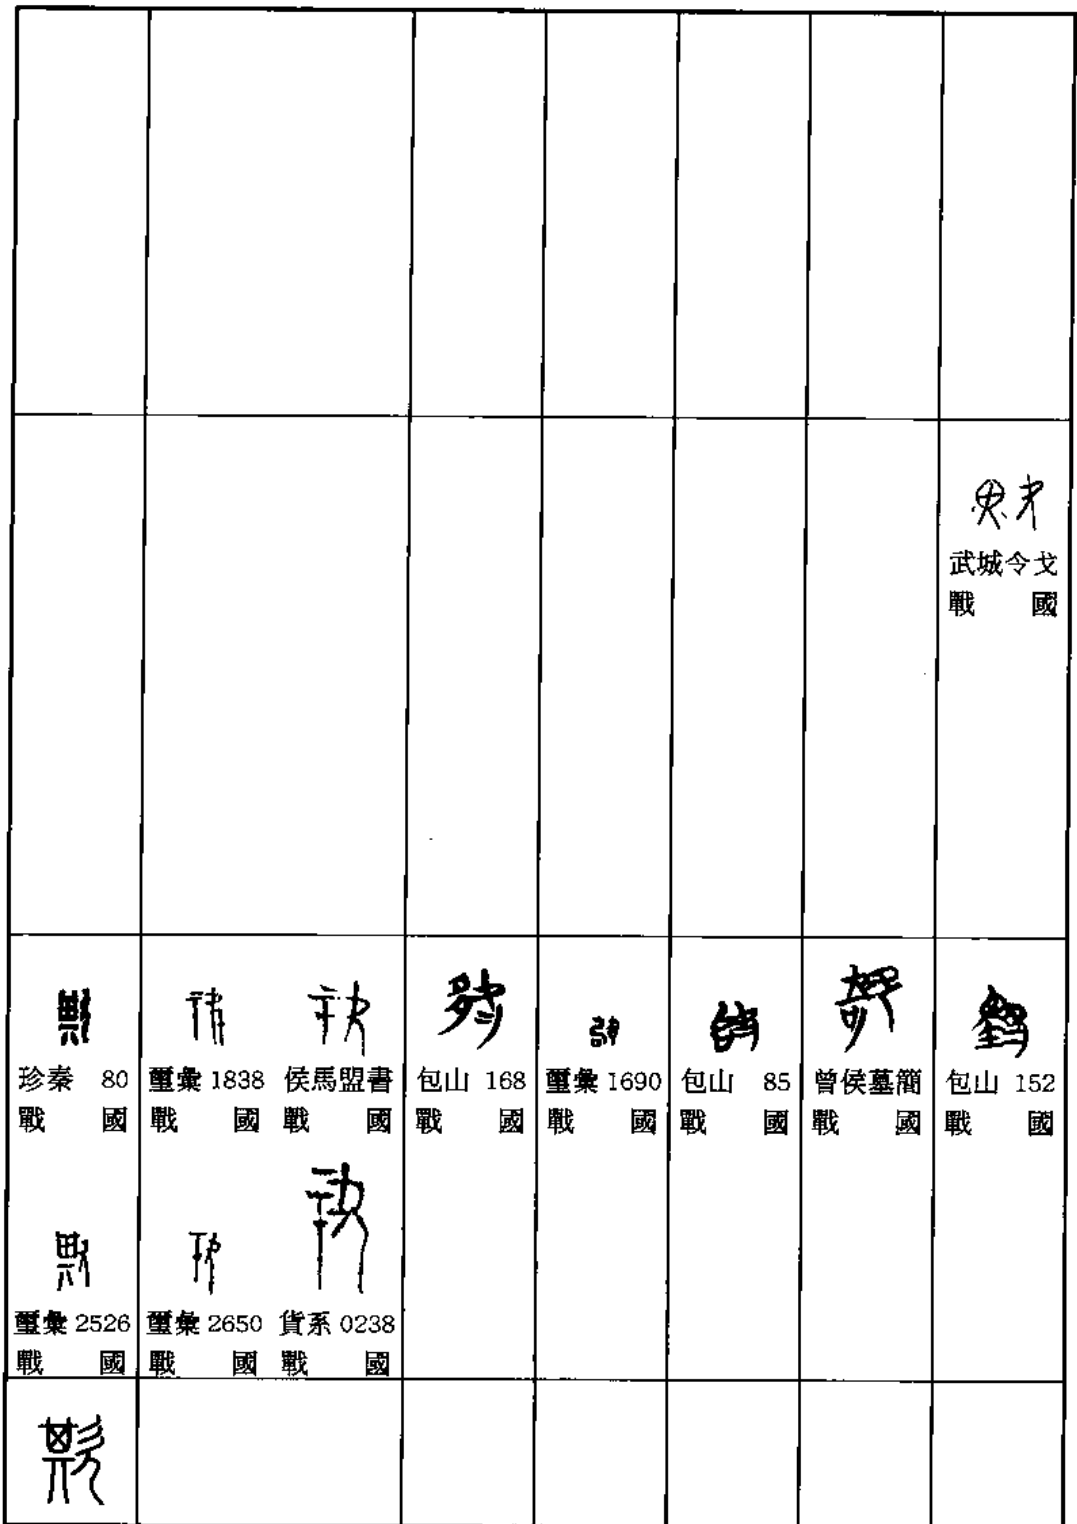 武城令戈
戰 國
珍秦 80
戰 國
璽彙 1838
戰 國
侯馬盟書
戰 國
包山 168
戰 國
璽彙 1690
戰 國
包山 85
戰 國
曾侯墓簡
戰 國
包山 152
戰 國
璽彙 2526
戰 國
璽彙 2650
戰 國
貨系 0238
戰 國